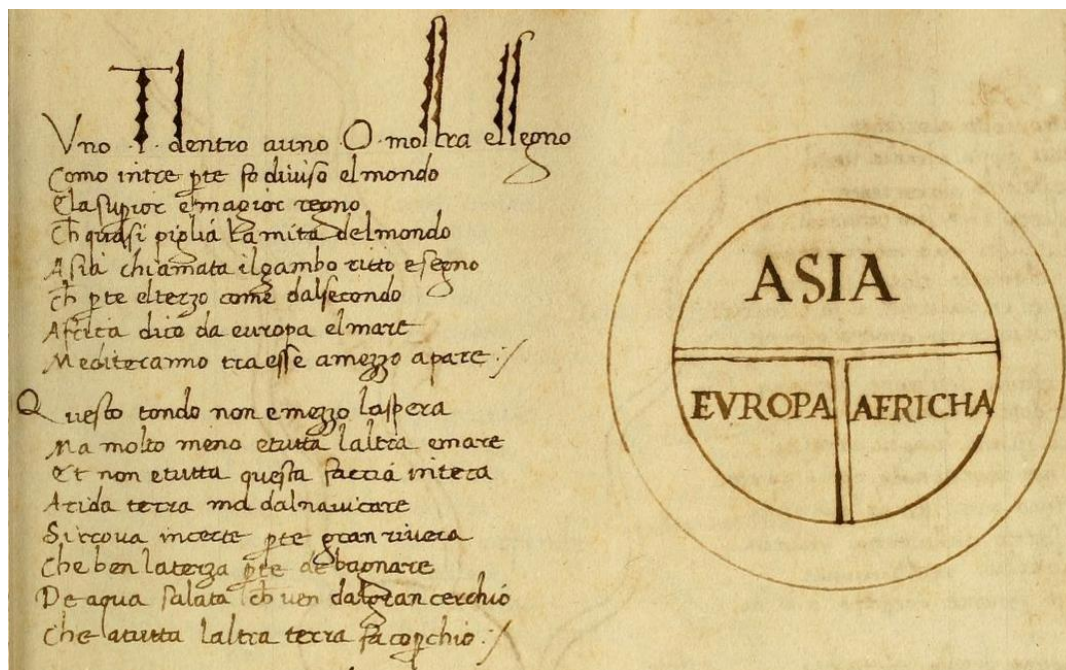 Vno .T. dentro auno O mostra ellegno
Como intre pte fo diuiso elmondo
Elasupior e magior regno
Ch quasi piglia la mita delmondo
Asia chiamata ilgambo ritto e segno
Ch pte elterzo come dalsecondo
Africa dico da europa elmare
Mediteranno tra esse amezzo apare :/
Questo tondo non e mezzo laspera
Ma molto meno etutta laltra emare
Et non etutta questa faccia intera
Arida terra ma dalnauicare
Si trova incerte pte gran rivera
Che ben laterza pte de bagnare
De aqua salata ch uen dalgran cerchio
Che atutta laltra terra fa copchio :/
ASIA
EVROPA AFRICHA